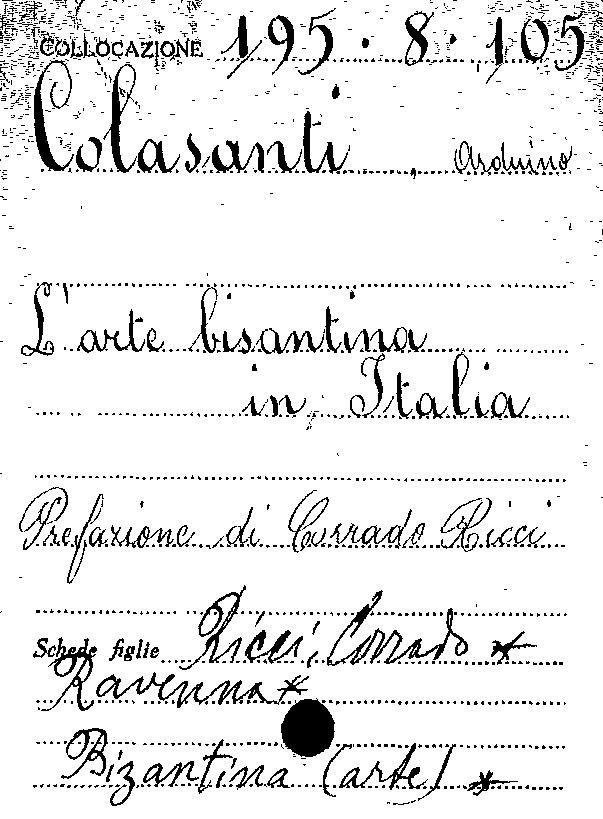 COLLOCAZIONE 195.8.105
Colasanti, Arduino
L'arte bisantina
in Italia
Prefazione di Corrado Ricci
Schede figlie Ricci, Corrado *
Ravenna *
Bizantina (arte) *